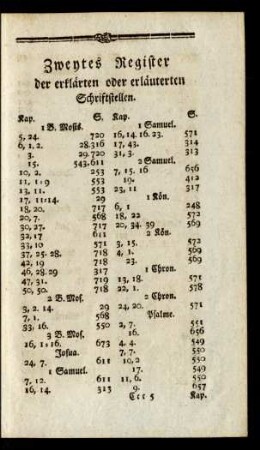 Zweytes Register
der erklärten oder erläuterten
Schriftstellen.
Kap. S.
1 B. Mosis.
5, 24. 720
6, 1. 2. 28.316
3. 29.720
15. 543.611
10, 2. 253
11, 1-9 553
13. 553
17, 11-14. 29
18, 20. 717
20, 7. 568
30, 27. 717
32, 17 611
33, 10 571
37, 25-28. 718
42, 19 718
46, 28. 29 317
47, 31. 719
50, 50. 718
2 B. Mos.
3, 2. 14. 29
7, 1. 568
33, 16. 550
3 B. Mos.
16, 1-16. 673
Josua.
24, 7. 611
1 Samuel.
7, 12. 611
16, 14. 313
Kap. S.
1 Samuel.
16, 14. 16. 23. 571
17, 43. 314
31, 3. 313
2 Samuel.
7, 15. 16 656
19. 412
23, 11 317
1 Kön.
6, 1 248
18, 22. 572
20, 34. 39 569
2 Kön.
3, 15. 572
4, 1. 656
23. 568
1 Chron.
13, 18. 571
22, 1. 578
2 Chron.
24, 20. 571
Psalme.
2, 7. 551
16. 656
4, 4. 549
7, 7. 550
10, 2 550
17. 549
11, 6. 550
9. 657
Ccc 5 Kap.